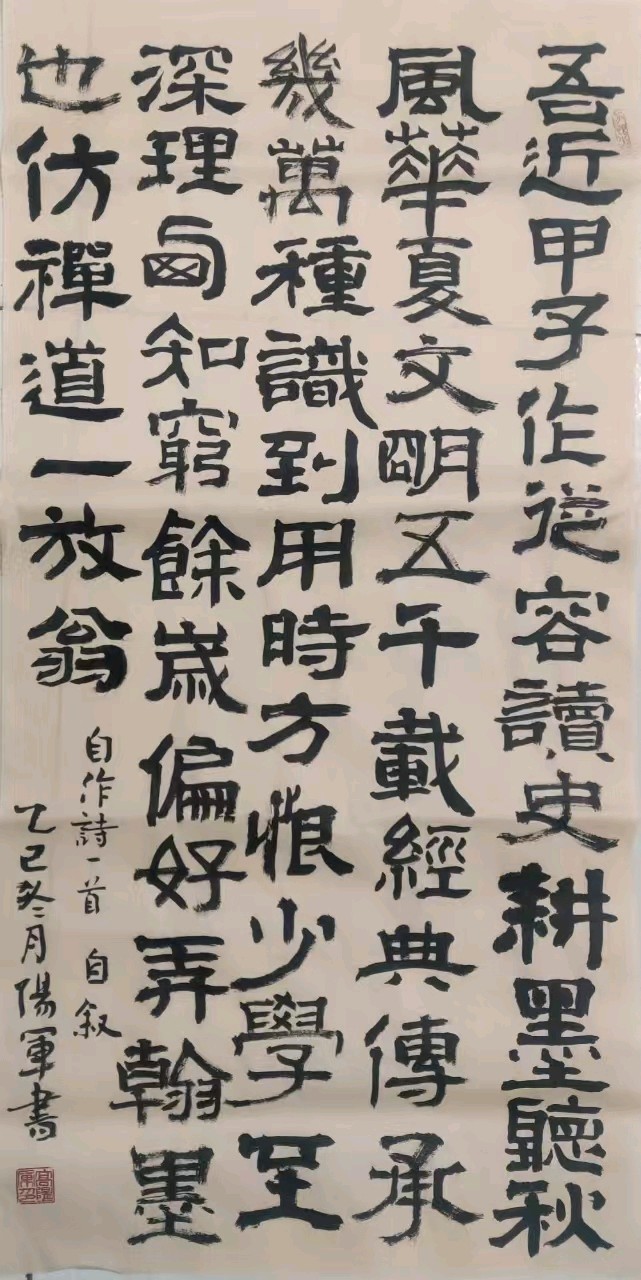 吾近甲子作從容讀史耕墨聽秋
風華夏文明五千載經典傳承
幾萬種識到用時方恨少學至
深理知窮餘歲偏好弄翰墨
也仿禪道一放翁
自作詩一首 自叙
乙巳冬月陽軍書